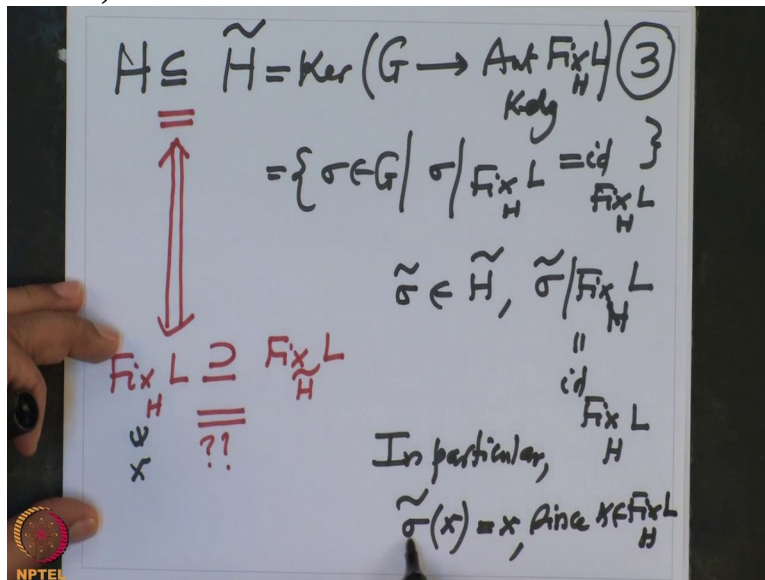 H ⊆ H̃ = Ker (G ⟶ Aut Fix_H L) ③
K-alg
= { σ∈G | σ|Fix_H L = id_Fix_H L }
σ̃ ∈ H̃, σ̃|Fix_H L
=
id_Fix_H L
Fix_H L ⊇ Fix_H̃ L
= ??
x
In particular,
σ̃(x) = x, since x∈Fix_H L
NPTEL